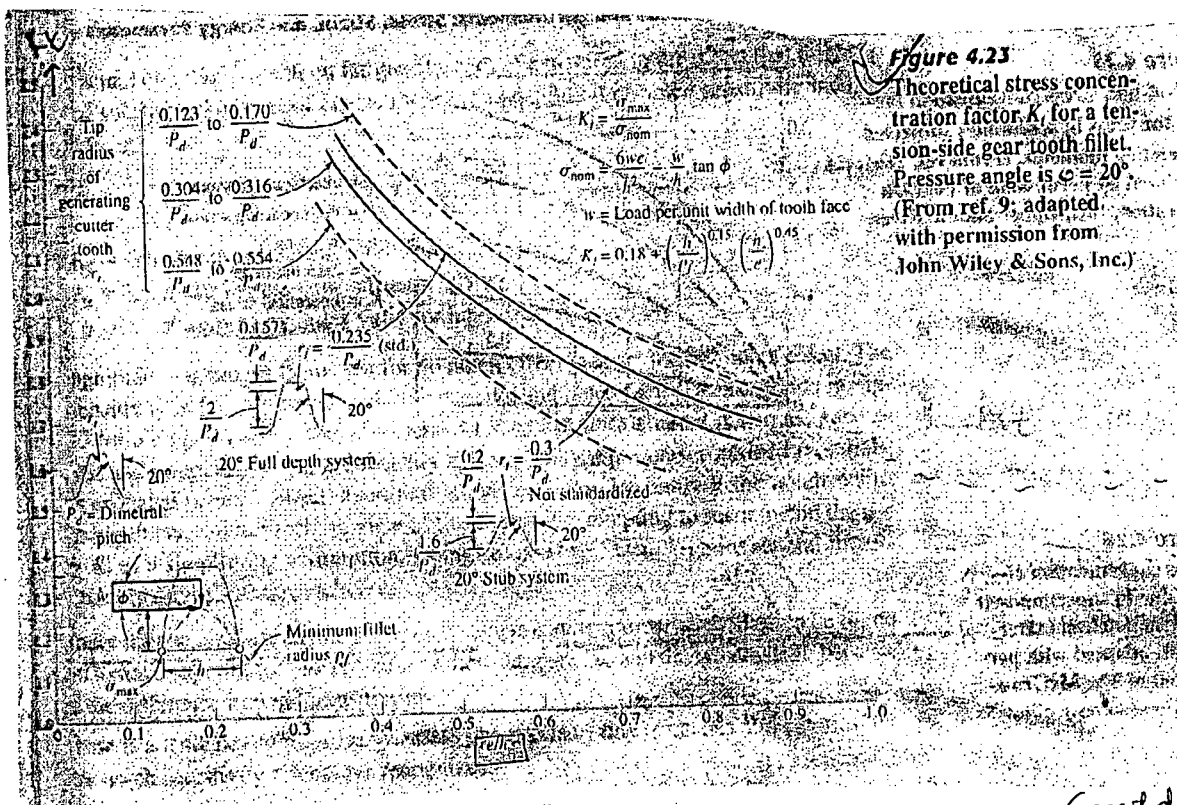 Figure 4.23
Theoretical stress concen-
tration factor K_t for a ten-
sion-side gear tooth fillet.
Pressure angle is φ = 20°.
(From ref. 9; adapted
with permission from
John Wiley & Sons, Inc.)
Tip
radius
of
generating
cutter
tooth
0.123/P_d to 0.170/P_d
0.304/P_d to 0.316/P_d
0.548/P_d to 0.554/P_d
K_t = σ_max/σ_nom
σ_nom = 6we/h² - w/h tan φ
w = Load per unit width of tooth face
K_t = 0.18 + (h/ρ_f)^0.15 (h/e)^0.45
0.157/P_d
= 0.235/P_d (std.)
2/P_d
20°
20° Full depth system
0.2/P_d
r_t = 0.3/P_d
Not standardized
1.6/P_d
20°
20° Stub system
20°
P_d = Dimetral
pitch
h
φ
e
Minimum fillet
radius ρ_f
σ_max
h
1.0
0 0.1 0.2 0.3 0.4 0.5 0.6 0.7 0.8 0.9 1.0